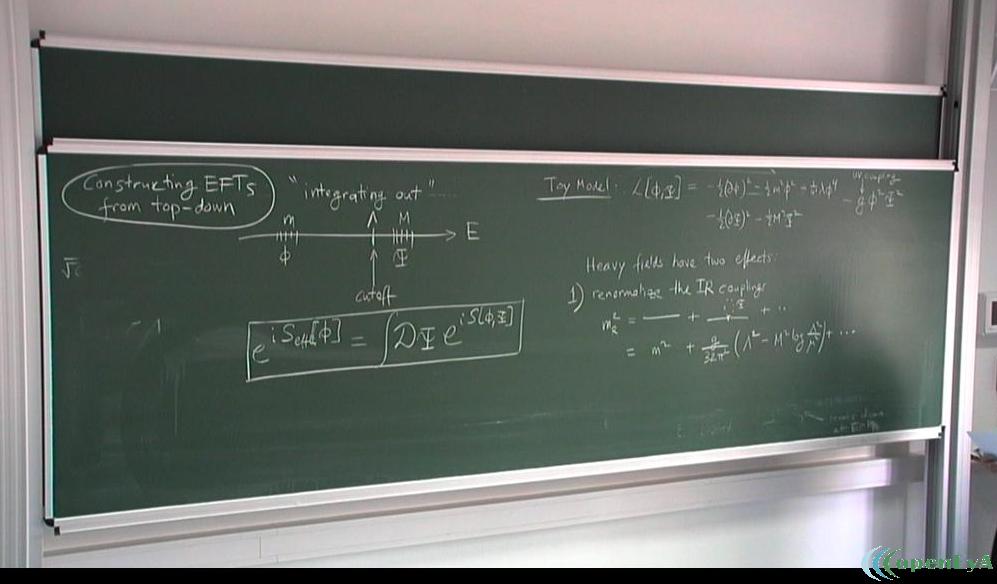 Constructing EFTs
from top-down
"integrating out"
m Λ M
E
ϕ Ψ
cutoff
e^{iS_eff[ϕ]} = ∫DΨ e^{iS[ϕ,Ψ]}
Toy Model: L[ϕ,Ψ] = -½(∂ϕ)² - ½m²ϕ² - ¼λϕ⁴
UV coupling
- gϕ²Ψ²
-½(∂Ψ)² - ½M²Ψ²
Heavy fields have two effects:
1) renormalize the IR couplings
Ψ
m_R² = + + ..
= m² + g/32π² (Λ² - M² log Λ²/μ²) + ...
openEyA